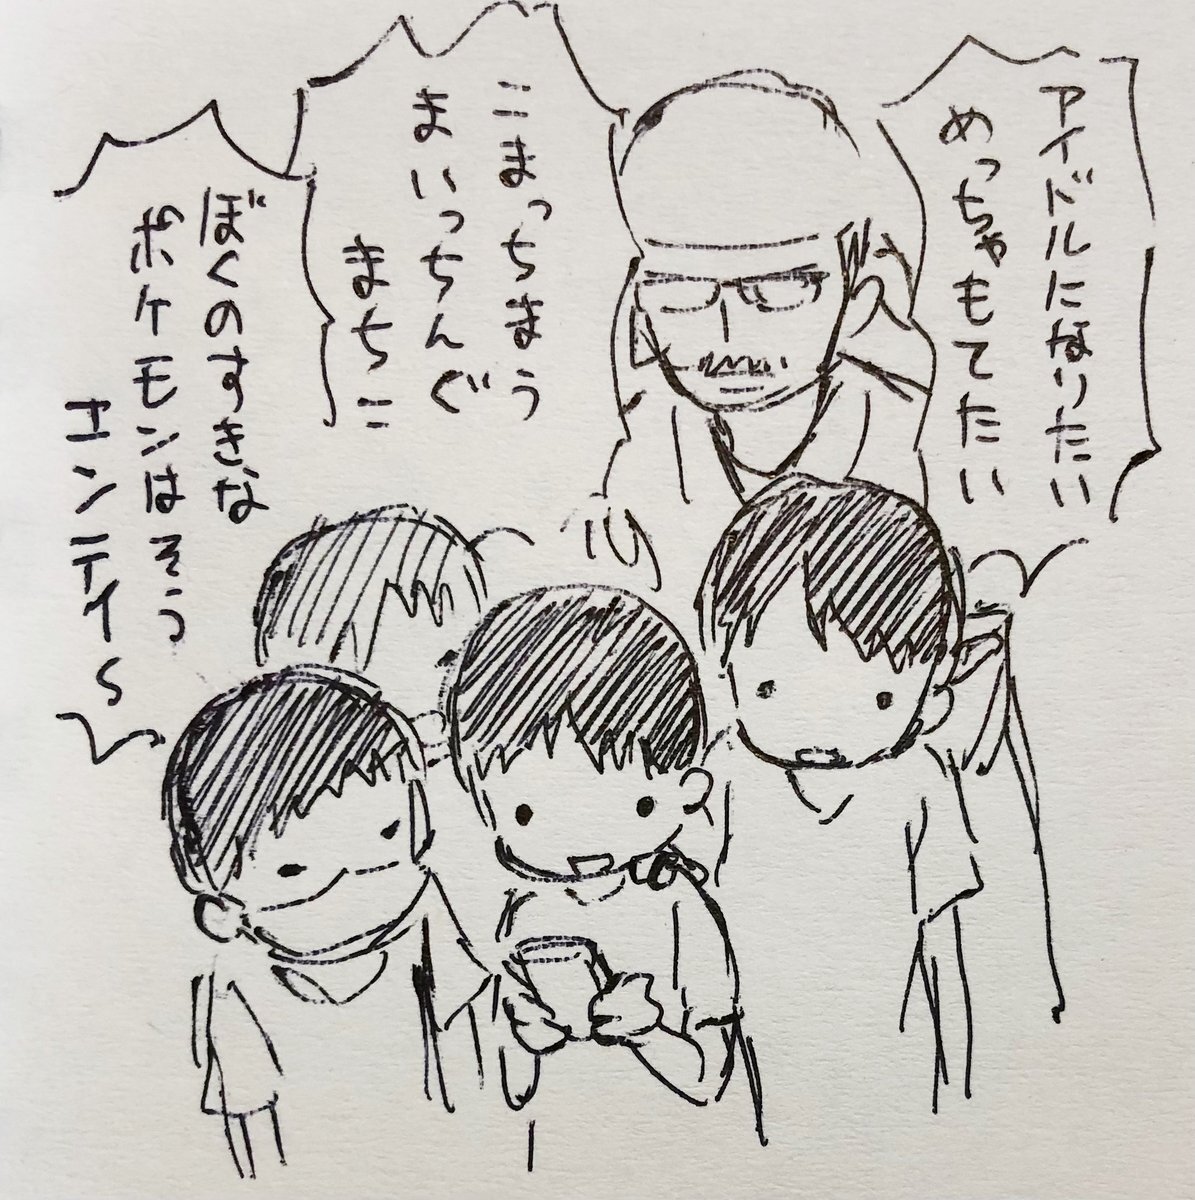 アイドルになりたい
めっちゃもてたい
こまっちまう
まいっちんぐ
まちこ
ぼくのすきな
ポケモンはそう
エンテイ〜